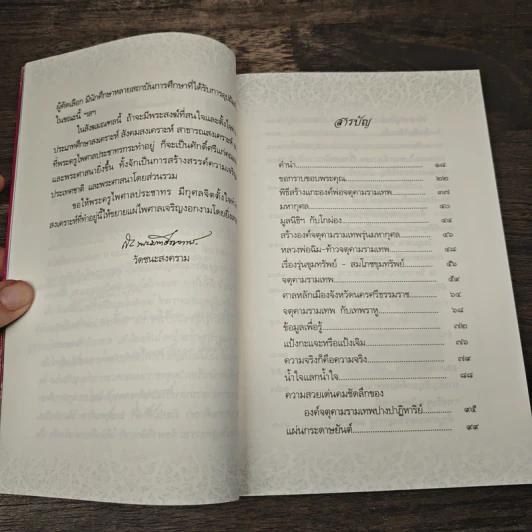 ผู้คัดเลือก มีนักศึกษาหลายสถาบันการศึกษาที่ได้รับการอุปถัมภ์
ในขณะนี้ ฯลฯ
ในสังฆมณฑลนี้ ถ้าจะมีพระสงฆ์ที่สนใจและตั้งใจ
ประเภทศึกษาสงเคราะห์ สังคมสงเคราะห์ สาธารณสงเคราะห์
ที่พระครูไพศาลประชาทรกระทำอยู่ ก็จะเป็นศักดิ์ศรีแก่คณะ
และพระศาสนายิ่งขึ้น ทั้งจักเป็นการสร้างสรรค์ความเจริญ
ประเทศชาติ และพระศาสนาโดยส่วนรวม
ขอให้พระครูไพศาลประชาทร มีกุศลจิตตั้งใจ
สงเคราะห์ที่ทำอยู่นี้ให้ขยายแผ่ไพศาลเจริญงอกงามโดยยิ่ง
วัดชนะสงคราม
สารบัญ
คำนำ ๑๘
ขอกราบขอบพระคุณ ๒๒
พิธีสร้างเกาะองค์พ่อจตุคามรามเทพ ๓๗
มหากุศล ๔๐
มูลนิธิฯ กับโกผ่อง ๔๔
สร้างองค์จตุคามรามเทพรุ่นมหากุศล ๔๖
หลวงพ่อฉิม-ท้าวจตุคามรามเทพ ๔๘
เรื่องรุ่นขุมทรัพย์ - สมโภชขุมทรัพย์ ๕๖
จตุคามรามเทพ ๕๙
ศาลหลักเมืองจังหวัดนครศรีธรรมราช ๖๔
จตุคามรามเทพ กับเทพราหู ๖๘
ข้อมูลเพื่อรู้ ๗๒
แป้งกะแจะหรือแป้งเจิม ๗๖
ความจริงก็คือความจริง ๗๙
น้ำใจแลกน้ำใจ ๘๘
ความสวยเด่นคมชัดลึกของ
องค์จตุคามรามเทพปางปาฏิหาริย์ ๙๕
แผ่นกระดาษยันต์ ๙๙